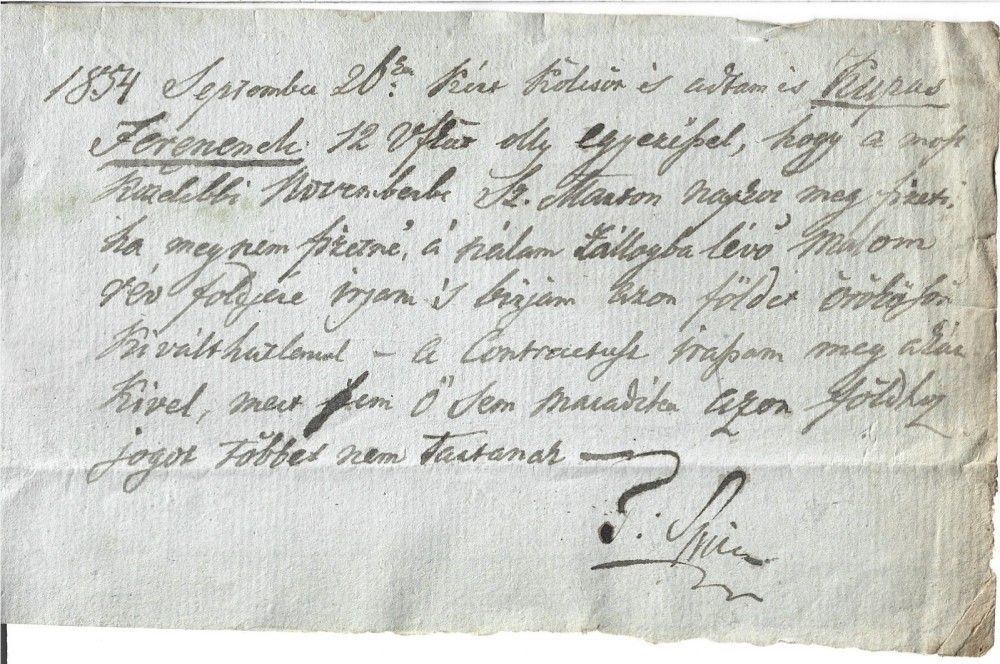 1854 September 26án Kért Kölcsön és adtam is Kupas
Ferencnek 12 Vftot olly egyezéssel, hogy a most
Közelebbi Novemberbe Sz. Marton napkor meg fizeti.
ha meg nem fizetné, á nálam Zállogba lévő Malom
rév foldjére irjam és bizjam azon földet örökössön
Kiválthatlanul – a Contractust irassam meg akár
Kivel, mert sem Ő sem maradéka azon földhoz
jogot többet nem Tartanak